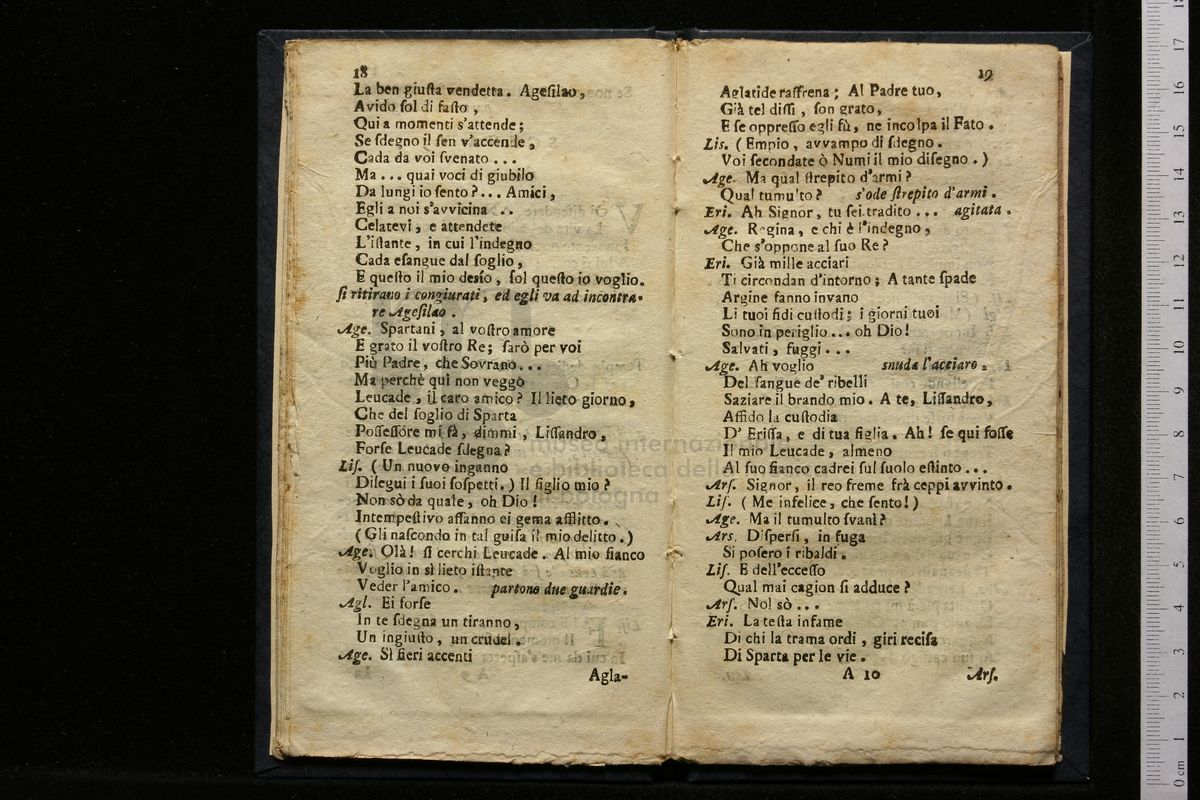 18
La ben giuſta vendetta. Ageſilao,
Avido ſol di faſto,
Qui a momenti s'attende;
Se ſdegno il ſen v'accende,
Cada da voi ſvenato...
Ma... quai voci di giubilo
Da lungi io ſento?... Amici,
Egli a noi s'avvicina...
Celatevi, e attendete
L'iſtante, in cui l'indegno
Cada eſangue dal ſoglio,
E queſto il mio desio, ſol queſto io voglio.
ſi ritirano i congiurati, ed egli va ad incontra-
re Ageſilao.
Age. Spartani, al voſtro amore
E grato il voſtro Re; ſarò per voi
Più Padre, che Sovrano...
Ma perchè quì non veggo
Leucade, il caro amico? Il lieto giorno,
Che del ſoglio di Sparta
Poſſeſſore mi fà, dimmi, Liſſandro,
Forſe Leucade ſdegna?
Liſ. (Un nuovo inganno
Dilegui i ſuoi ſoſpetti.) Il figlio mio?
Non sò da quale, oh Dio!
Intempeſtivo affanno ei gema afflitto.
(Gli naſcondo in tal guiſa il mio delitto.)
Age. Olà! ſi cerchi Leucade. Al mio fianco
Voglio in sì lieto iſtante
Veder l'amico. partono due guardie.
Agl. Ei forſe
In te ſdegna un tiranno,
Un ingiuſto, un crudel.
Age. Sì fieri accenti
Agla-
19
Aglatide raffrena; Al Padre tuo,
Già tel diſſi, ſon grato,
E ſe oppreſſo egli fù, ne incolpa il Fato.
Lis. (Empio, avvampo di ſdegno.
Voi ſecondate ò Numi il mio diſegno.)
Age. Ma qual ſtrepito d'armi?
Qual tumulto? s'ode ſtrepito d'armi.
Eri. Ah Signor, tu ſei tradito... agitata.
Age. Regina, e chi è l'indegno,
Che s'oppone al ſuo Re?
Eri. Già mille acciari
Ti circondan d'intorno; A tante ſpade
Argine fanno invano
Li tuoi fidi cuſtodi; i giorni tuoi
Sono in periglio... oh Dio!
Salvati, fuggi...
Age. Ah voglio ſnuda l'acciaro.
Del ſangue de' ribelli
Saziare il brando mio. A te, Liſſandro,
Affido la cuſtodia
D' Eriſſa, e di tua figlia. Ah! ſe qui foſſe
Il mio Leucade, almeno
Al ſuo fianco cadrei ſul ſuolo eſtinto...
Arſ. Signor, il reo freme frà ceppi avvinto.
Liſ. (Me infelice, che ſento!)
Age. Ma il tumulto ſvanì?
Ars. Diſperſi, in fuga
Si poſero i ribaldi.
Liſ. E dell'ecceſſo
Qual mai cagion ſi adduce?
Arſ. Nol sò...
Eri. La teſta infame
Di chi la trama ordì, giri reciſa
Di Sparta per le vie.
A 10 Arſ.
museo internazionale
e biblioteca della
bologna
0 cm 1 2 3 4 5 6 7 8 9 10 11 12 13 14 15 16 17 18